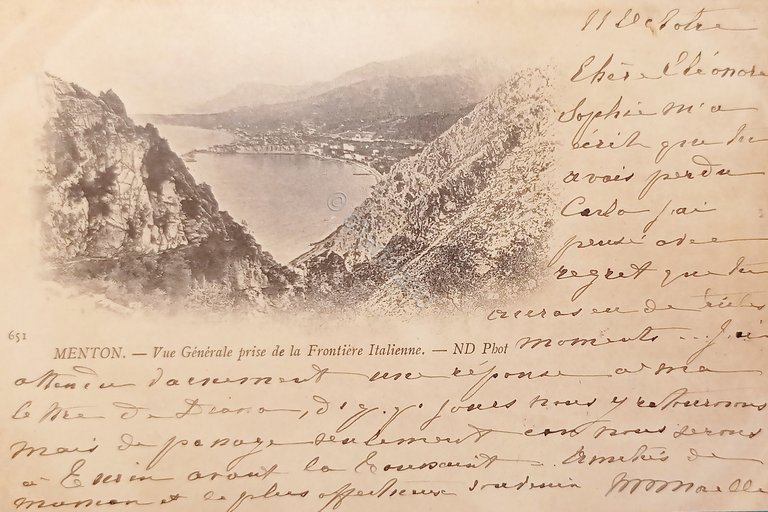 11 Octobre
Chère Eléonore
Sophie m'a
écrit que tu
avais perdu
Carlo j'ai
pensé avec
regret que tu
auras eu de tristes
moments... J'ai
651
MENTON. — Vue Générale prise de la Frontière Italienne. — ND Phot
attendu vainement une réponse à ma
lettre de Diana, d'ici q.q. jours nous y retournons
mais de passage seulement car nous serons
à Turin avant la Toussaint. Amitiés de
maman et le plus affectueux souvenir